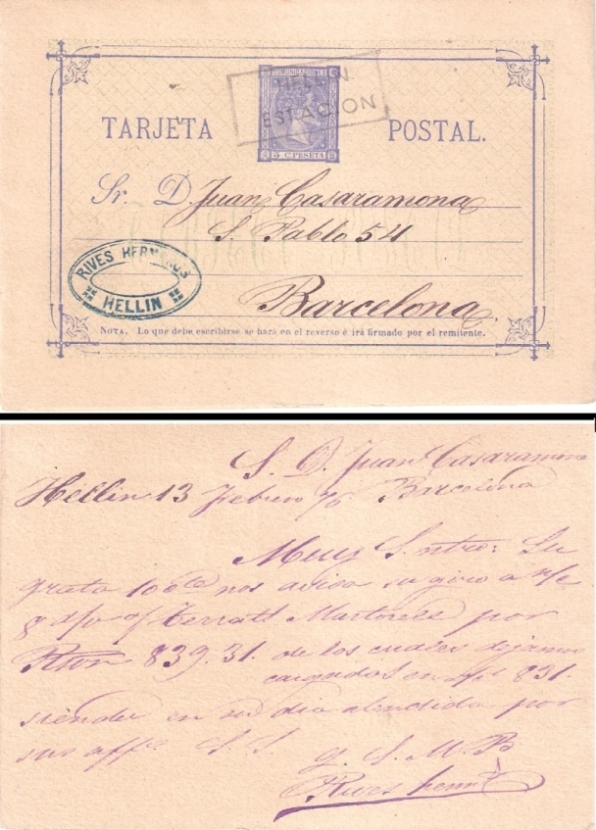 HELLIN
ESTACION
COMUNICACIONES
5 C. PESETA
TARJETA POSTAL.
Sr. D. Juan Casaramona
S. Pablo 54
RIVES HERMANOS
HELLIN
Barcelona
NOTA. Lo que debe escribirse se hará en el reverso é irá firmado por el remitente.
S. D. Juan Casaramona
Hellin 13 Febrero 76 Barcelona
Muy S. ntro: Su
grata 10 nos avisa su giro a
8 d/v o/ Terrats Martorell por
Rvon 839.31. de los cuales dejamos
cargados en 831.
siendo en su dia atendida por
sus aff. S. S.
q. S. M. B.
Rives herm